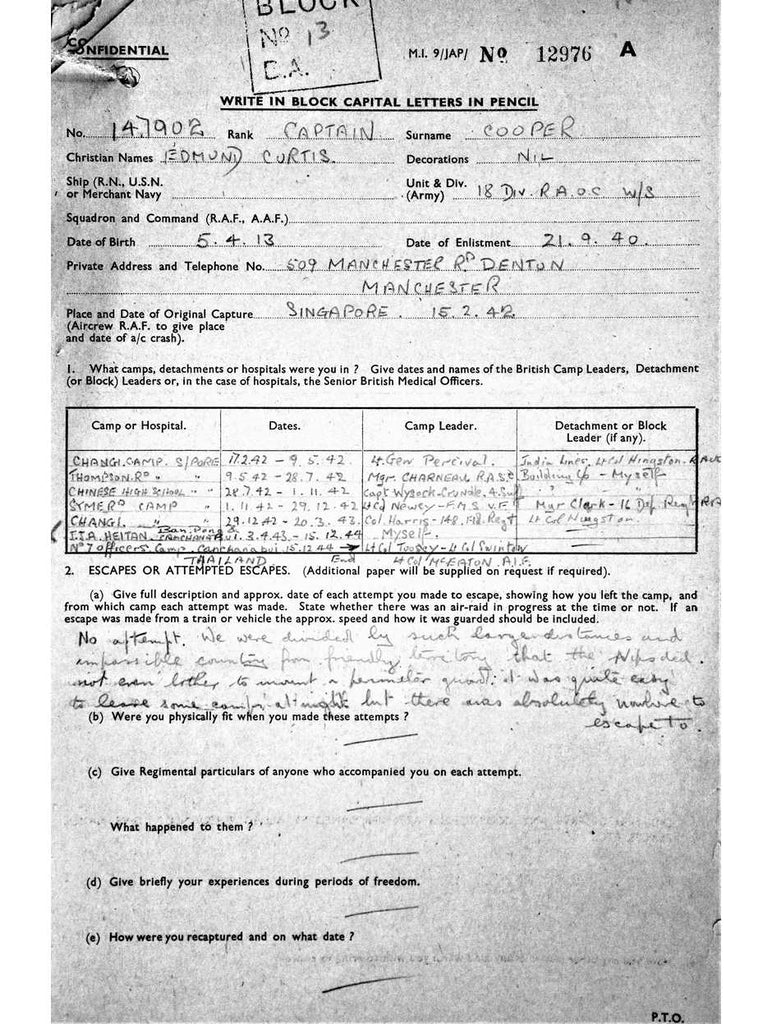 BLOCK
No 13
E.A.
CONFIDENTIAL
M.I. 9/JAP/ No 12976 A
WRITE IN BLOCK CAPITAL LETTERS IN PENCIL
No. 147902 Rank CAPTAIN Surname COOPER
Christian Names EDMUND CURTIS. Decorations NIL
Ship (R.N., U.S.N. or Merchant Navy
Unit & Div. (Army) 18 DIV. R.A.O.C W/S
Squadron and Command (R.A.F., A.A.F.)
Date of Birth 5.4.13 Date of Enlistment 21.9.40.
Private Address and Telephone No. 509 MANCHESTER RD DENTON
MANCHESTER
Place and Date of Original Capture SINGAPORE. 15.2.42
(Aircrew R.A.F. to give place
and date of a/c crash).
1. What camps, detachments or hospitals were you in ? Give dates and names of the British Camp Leaders, Detachment
(or Block) Leaders or, in the case of hospitals, the Senior British Medical Officers.
Camp or Hospital. Dates. Camp Leader. Detachment or Block Leader (if any).
CHANGI CAMP. S/PORE 17.2.42 – 9.5.42. Lt. Gen Percival. India Lines. Lt Col Hingston.
THOMPSON RD " " 9.5.42 – 28.7.42 Mjr CHARNEAU R.A.S.C Building Co – Myself
CHINESE HIGH SCHOOL " " 28.7.42 – 1.11.42 Capt
SYME RD CAMP 1.11.42 – 29.12.42 Lt Col Newey – F.M.S.V.F. Myr Clark –
CHANGI. " " 29.12.42 – 20.3.43. Col. Harris – 148. Fld. Regt Lt Col Hingston
I.J.A. HEITAN. Ban Pong & 3.4.43 – 15.12.44 Myself.
No 7 Officers Camp. 15.12.44 → End Lt Col Toosey – Lt Col Swinton
THAILAND Lt Col McEATON A.I.F.
2. ESCAPES OR ATTEMPTED ESCAPES. (Additional paper will be supplied on request if required).
(a) Give full description and approx. date of each attempt you made to escape, showing how you left the camp, and
from which camp each attempt was made. State whether there was an air-raid in progress at the time or not. If an
escape was made from a train or vehicle the approx. speed and how it was guarded should be included.
No attempt. We were divided by such large distances and
impassible country from friendly territory that the Nips did
not even bother to mount a perimeter guard. it was quite easy
to leave some camps at night but there was absolutely nowhere to
escape to.
(b) Were you physically fit when you made these attempts ?
(c) Give Regimental particulars of anyone who accompanied you on each attempt.
What happened to them ?
(d) Give briefly your experiences during periods of freedom.
(e) How were you recaptured and on what date ?
P.T.O.